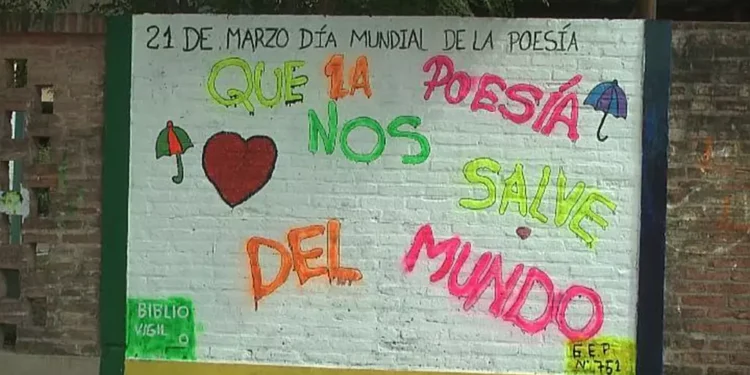 21 DE MARZO DÍA MUNDIAL DE LA POESÍA
QUE LA POESÍA
NOS SALVE
DEL MUNDO
BIBLIO
VIGIL
E.E.P.
N°.752